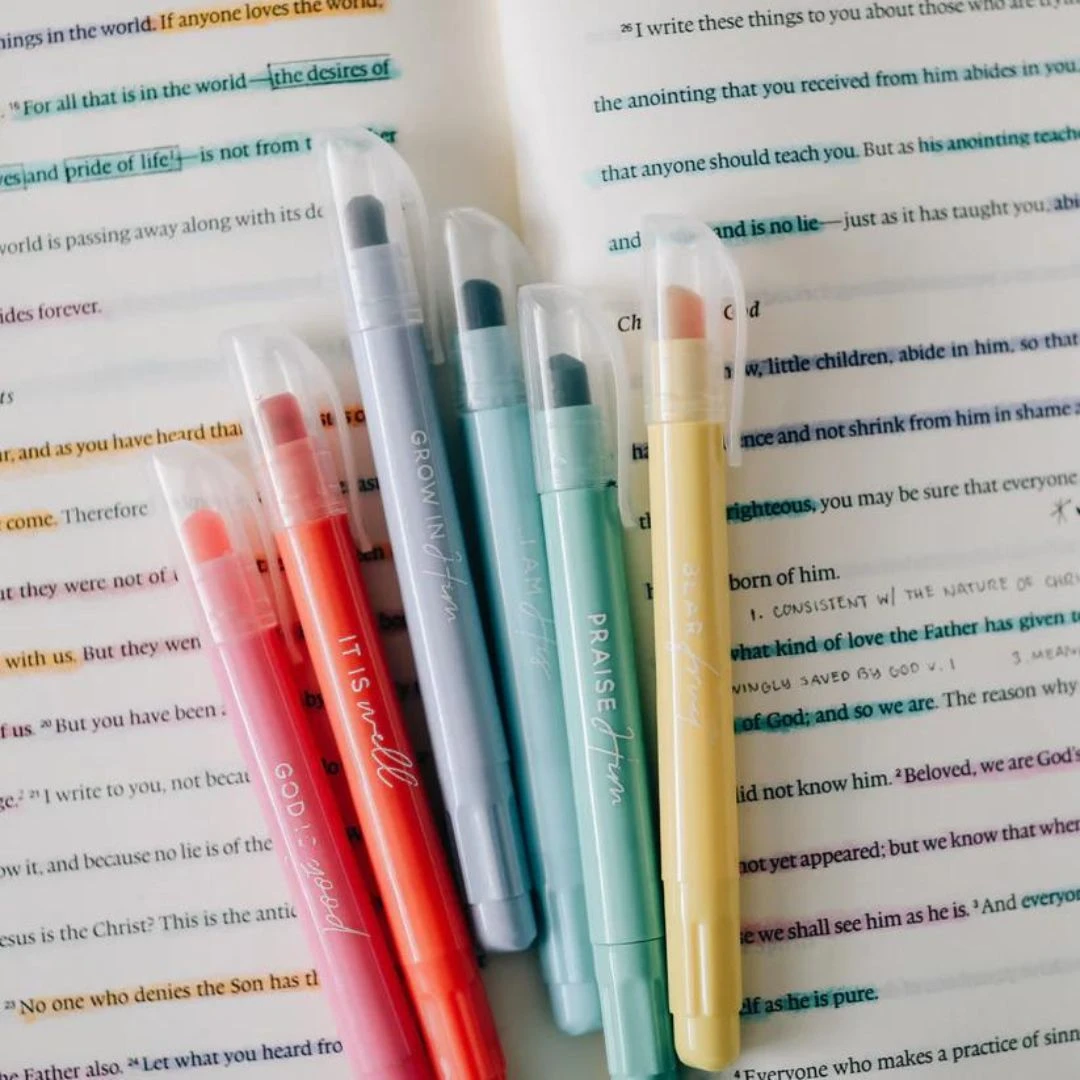 ings in the world. If anyone loves the world,
. ¹⁶ For all that is in the world—the desires of
yes and pride of life¹—is not from t er
world is passing away along with its de
ides forever.
ts
r, and as you have heard that it is
come. Therefore
ut they were not of
with us. But they wen
f us. ²⁰ But you have been
ge.² ²¹ I write to you, not becau
ow it, and because no lie is of the
esus is the Christ? This is the antic
²³ No one who denies the Son has th
he Father also. ²⁴ Let what you heard fro
²⁶ I write these things to you about those who are tryin
the anointing that you received from him abides in you,
that anyone should teach you. But as his anointing teache
and and is no lie—just as it has taught you, abi
Ch God
w, little children, abide in him, so that
ha ence and not shrink from him in shame a
th righteous, you may be sure that everyone
born of him.
1. CONSISTENT W/ THE NATURE OF CHRI
what kind of love the Father has given to
INGLY SAVED BY GOD V. 1 3. MEAN
of God; and so we are. The reason why
did not know him. ² Beloved, we are God's
not yet appeared; but we know that when
e we shall see him as he is. ³ And everyon
elf as he is pure.
⁴ Everyone who makes a practice of sinn
GOD IS good
IT IS well
GROW IN Him
I AM His
PRAISE Him
BEAR fruit